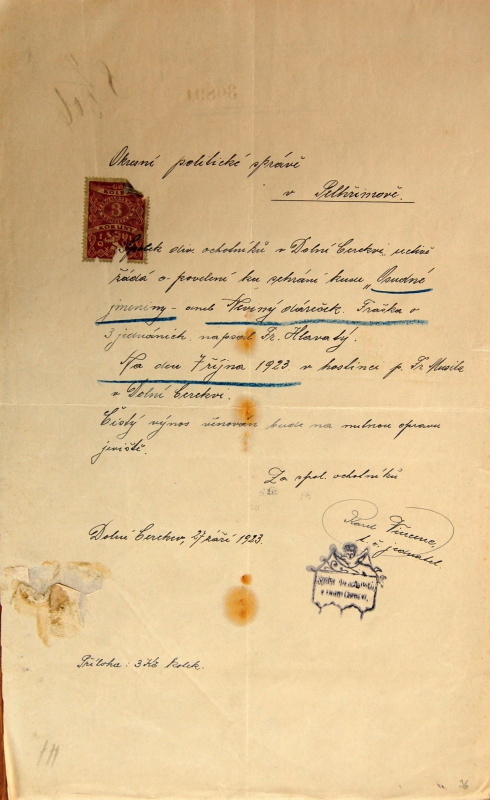 Okresní politické správě
v Pelhřimově.
KOLEK
3
KORUNY
Spolek div. ochotníků v Dolní Cerekvi, uctivě
žádá o povolení ku sehrání kusu „Osudné
jmeniny - aneb Nevinný dáreček. Fraška o
3 jednáních, napsal Fr. Hlavatý.
Na den 7 října 1923 v hostinci p. Fr. Musila
v Dolní Cerekvi.
Čistý výnos věnován bude na nutnou opravu
jeviště.
Za spol. ochotníků
Karel
t. č. jednatel.
Dolní Cerekev, 27 září 1923.
Příloha: 3 Kč kolek.